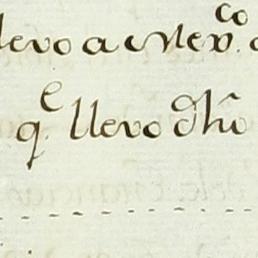 llevo a Mexco.
qe llevo dho